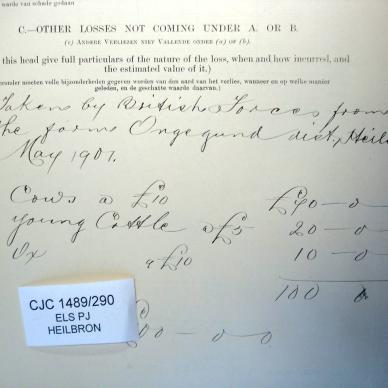 waarde van schade gedaan
C.—OTHER LOSSES NOT COMING UNDER A. OR B.
(c) ANDERE VERLIEZEN NIET VALLENDE ONDER (a) OF (b).
this head give full particulars of the nature of the loss, when and how incurred, and
the estimated value of it.)
moeten volle bijzonderheden gegeven worden van den aard van het verlies, wanneer en op welke manier
geleden, en de geschatte waarde daarvan.)
Taken by British Forces from
the farm Ongegund dist, Heil
May 1901.
Cows a £10 £70—0
Young Cattle a £5 20—0
Ox a £10 10—0
100 0
00—0—0
CJC 1489/290
ELS PJ
HEILBRON